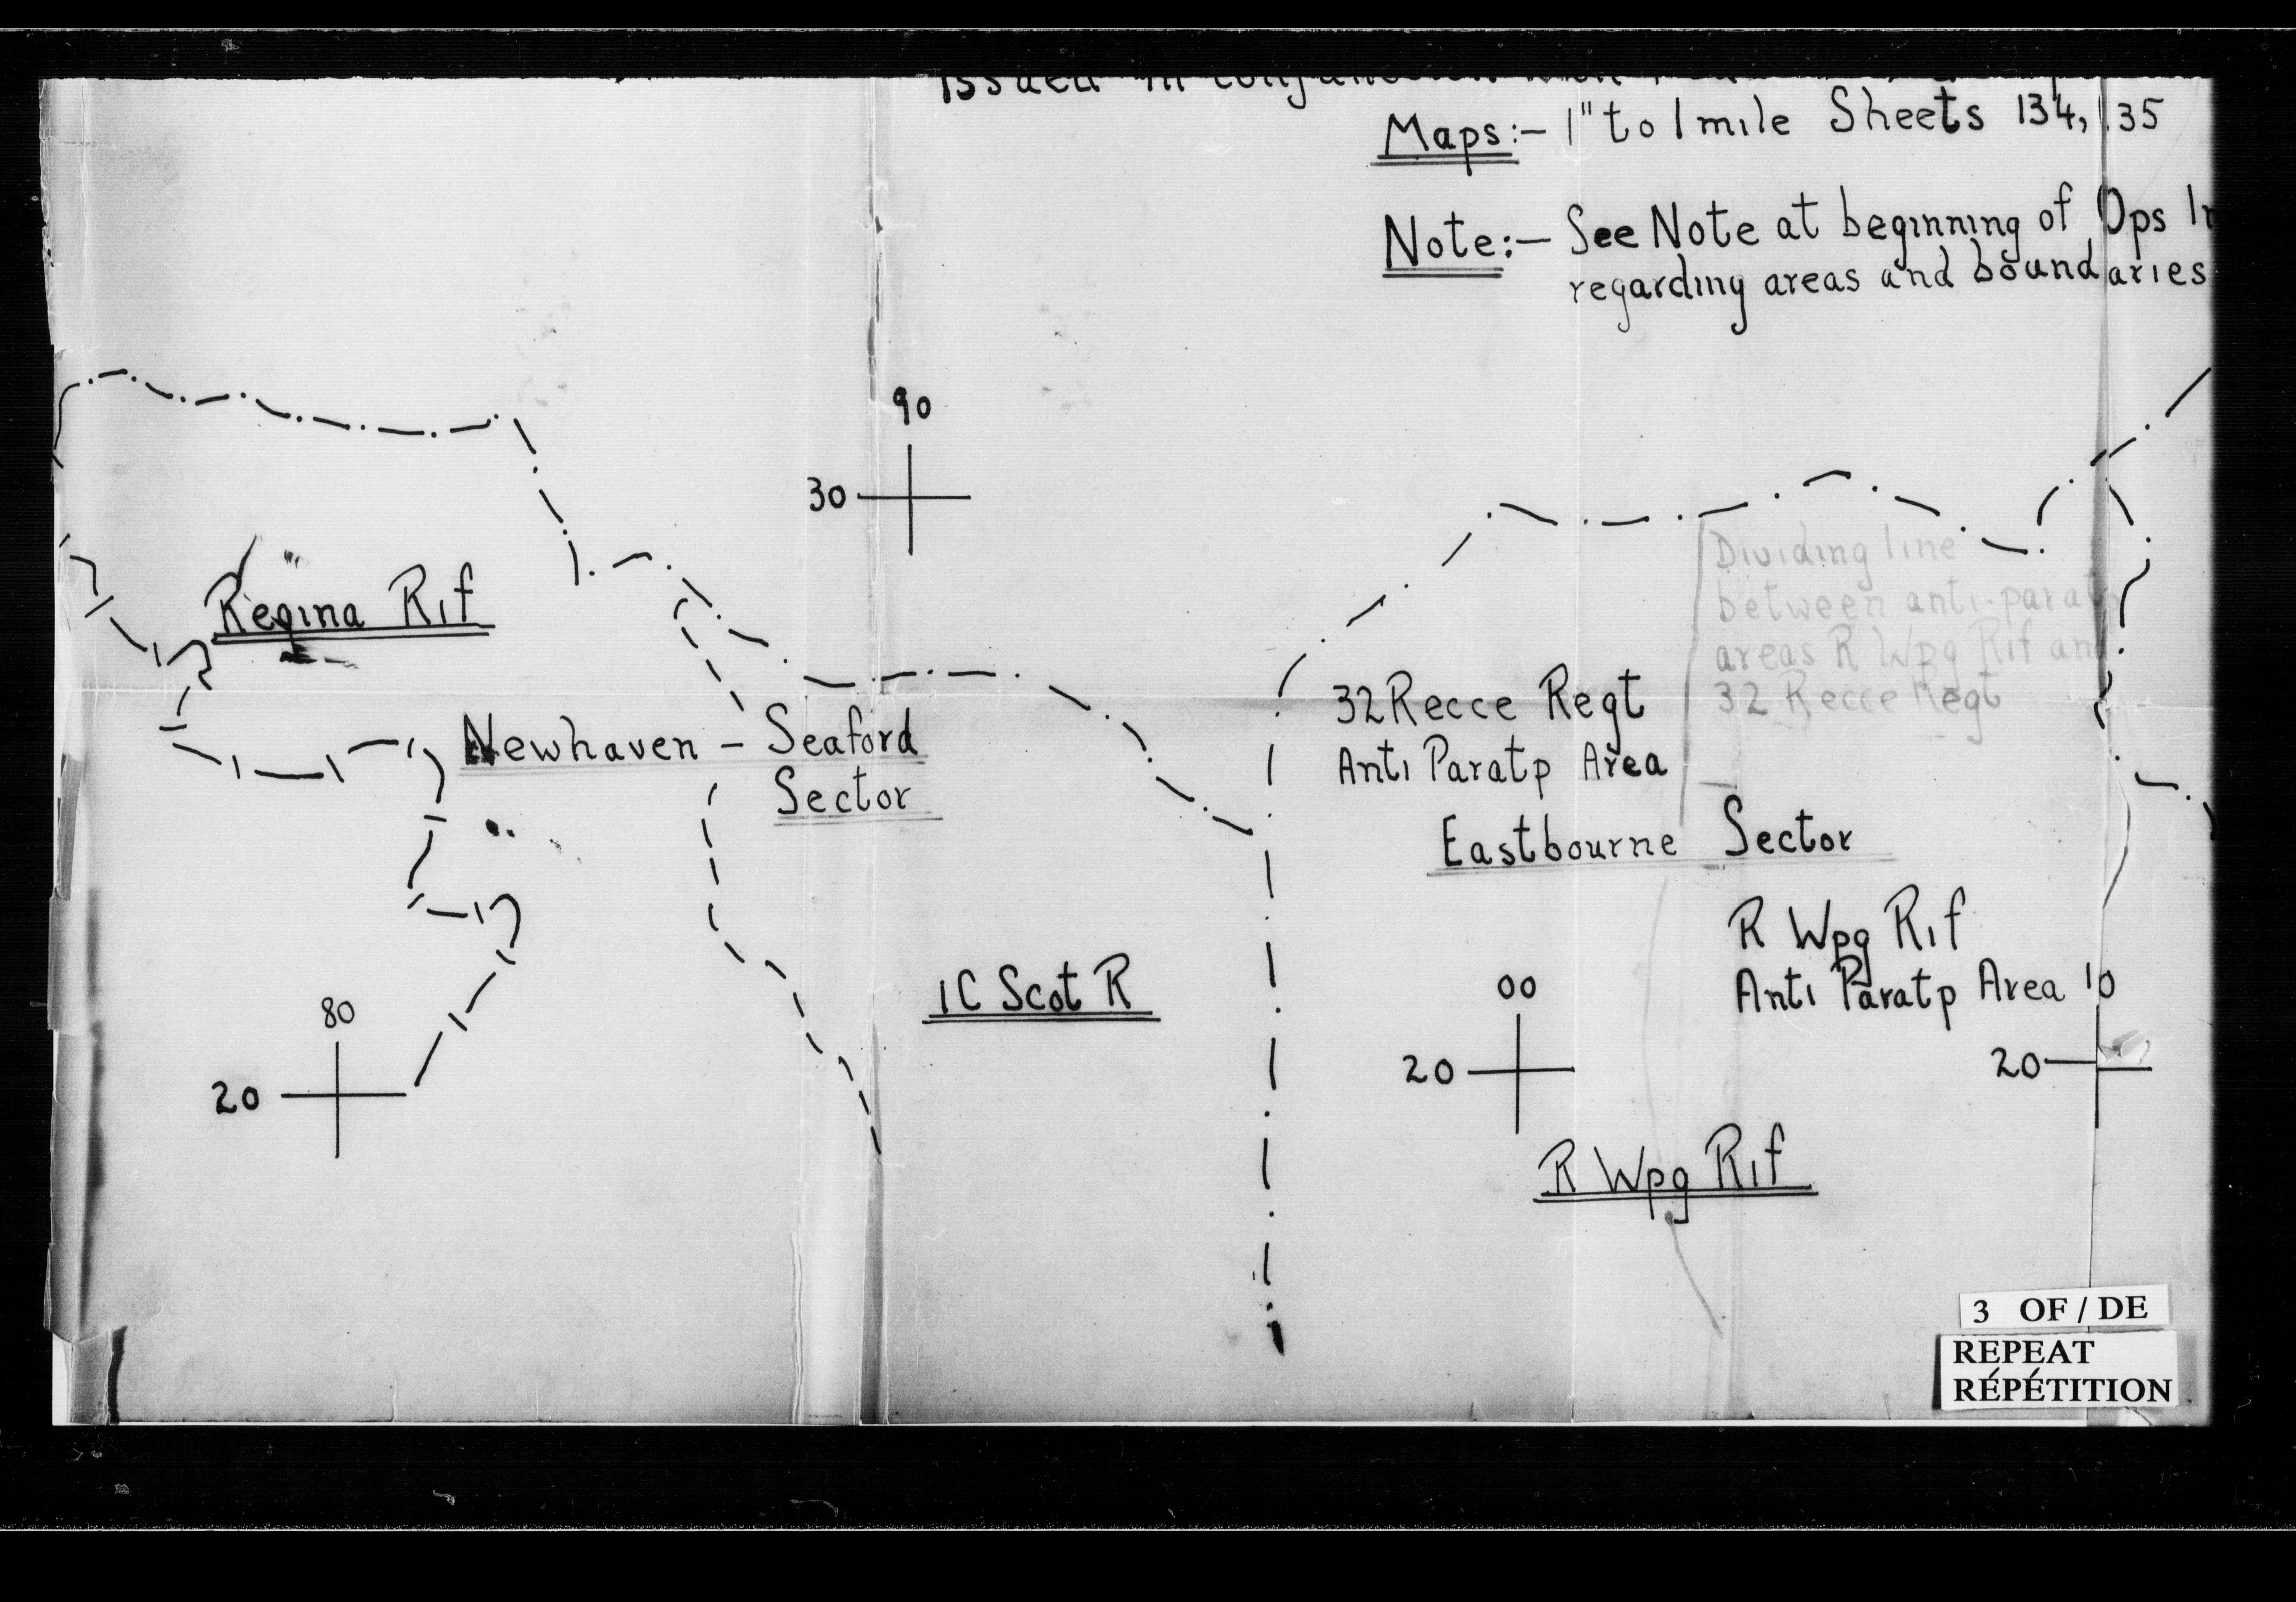 Issued in conjunction
Maps:- 1" to 1 mile Sheets 134, 135
Note:- See Note at beginning of Ops In
regarding areas and boundaries
90
30
Regina Rif
Dividing line
between anti-parat
areas R Wpg Rif and
32 Recce Regt
Newhaven - Seaford
Sector
32 Recce Regt
Anti Paratp Area
Eastbourne Sector
R Wpg Rif
Anti Paratp Area
1 C Scot R
80
20
00
20
10
20
R Wpg Rif
3 OF / DE
REPEAT
RÉPÉTITION